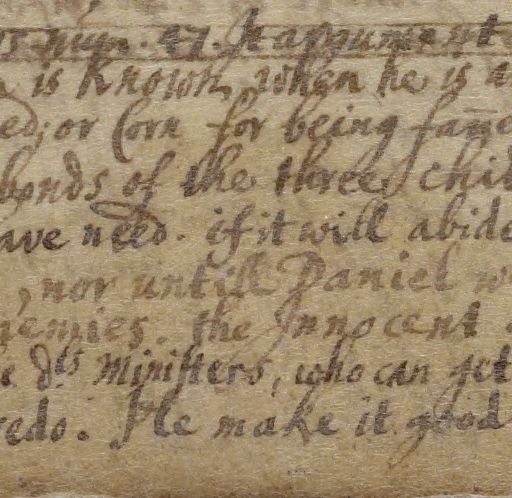 num. 47. It appeareth not
is known, when he is a
ed; or Corn for being fañe
bonds of the three chil
ave need. if it will abide
, nor untill Daniel w
nemies. the Innocent
e dls Ministers, who can get
redo. I'le make it good